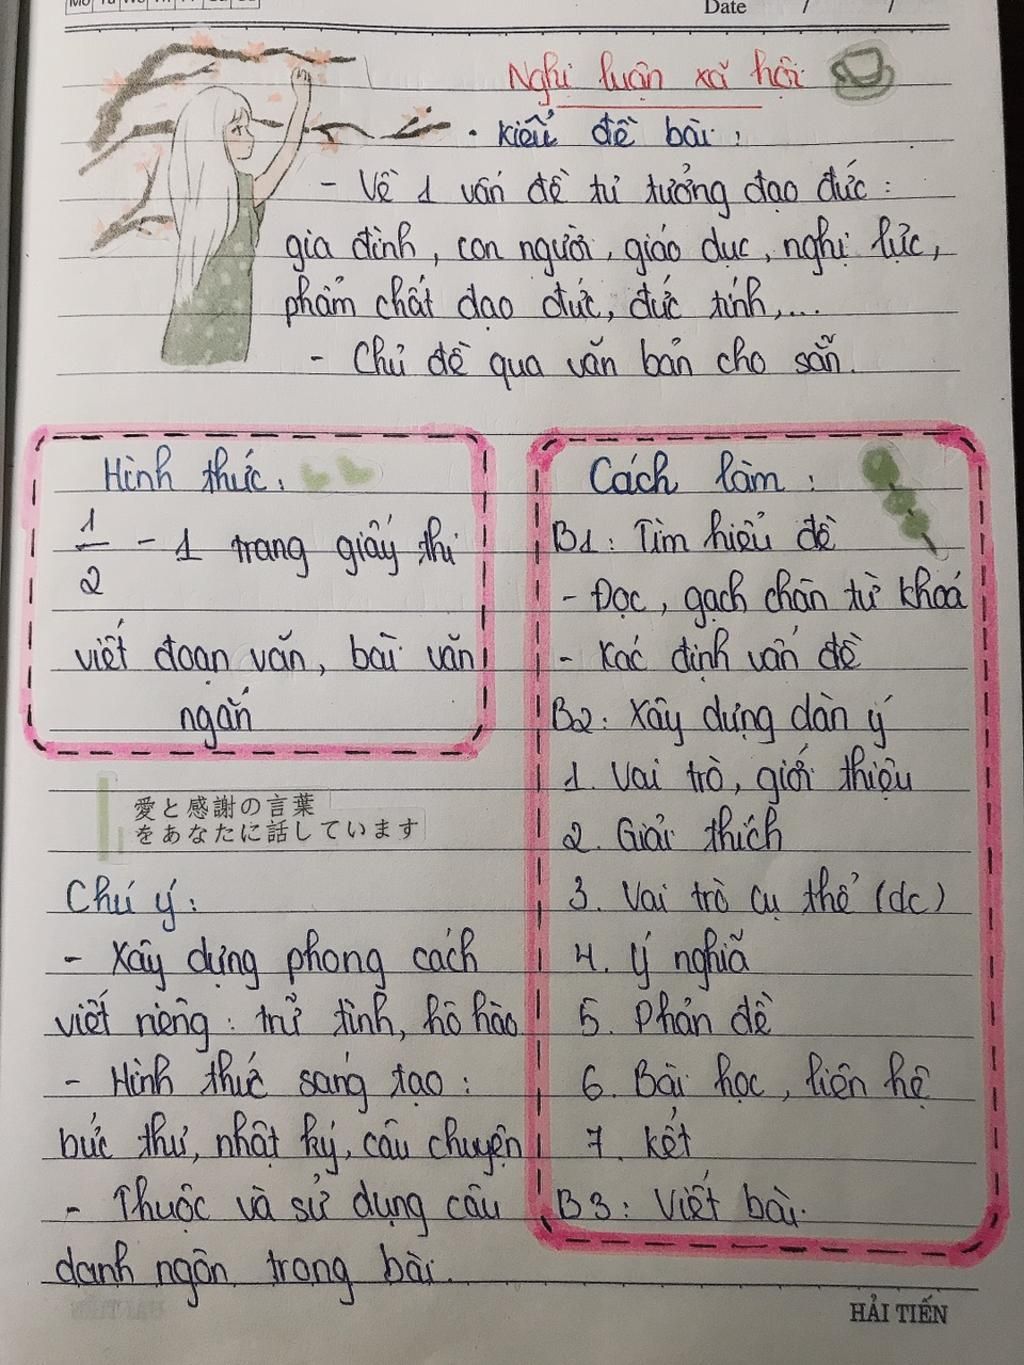 Date / /
Nghị luận xã hội
• Kiểu đề bài :
- Về 1 vấn đề tư tưởng đạo đức :
gia đình, con người, giáo dục, nghị lực,
phẩm chất đạo đức, đức tính,...
- Chủ đề qua văn bản cho sẵn.
Hình thức:
1/2 - 1 trang giấy thi
viết đoạn văn, bài văn
ngắn
愛と感謝の言葉
をあなたに話しています
Chú ý:
- Xây dựng phong cách
viết riêng : trữ tình, hô hào
- Hình thức sáng tạo :
bức thư, nhật ký, câu chuyện
- Thuộc và sử dụng câu
danh ngôn trong bài.
Cách làm :
B1: Tìm hiểu đề
- Đọc, gạch chân từ khoá
- Xác định vấn đề
B2: Xây dựng dàn ý
1. Vai trò, giới thiệu
2. Giải thích
3. Vai trò cụ thể (dc)
4. Ý nghĩa
5. Phản đề
6. Bài học, liên hệ
7. Kết
B3: Viết bài.
HẢI TIẾN